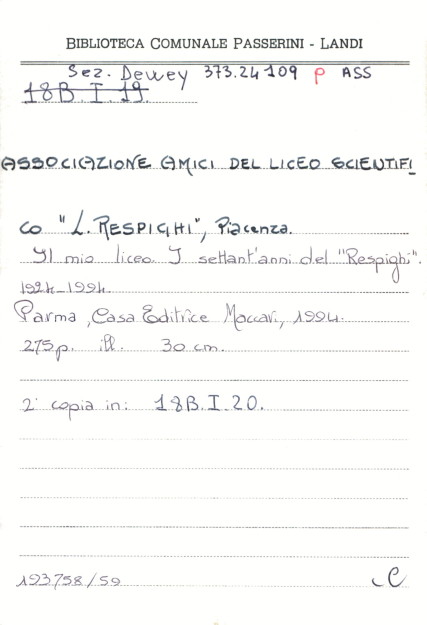 BIBLIOTECA COMUNALE PASSERINI - LANDI
Sez. Dewey 373.24109 P ASS
18B.I.19.
ASSOCIAZIONE AMICI DEL LICEO SCIENTIFI
CO "L. RESPIGHI", Piacenza.
Il mio liceo. I settant'anni del "Respighi".
1924-1994.
Parma, Casa Editrice Maccari, 1994.
275 p. ill. 30 cm.
2ª copia in: 18B.I.20.
193758/59 C